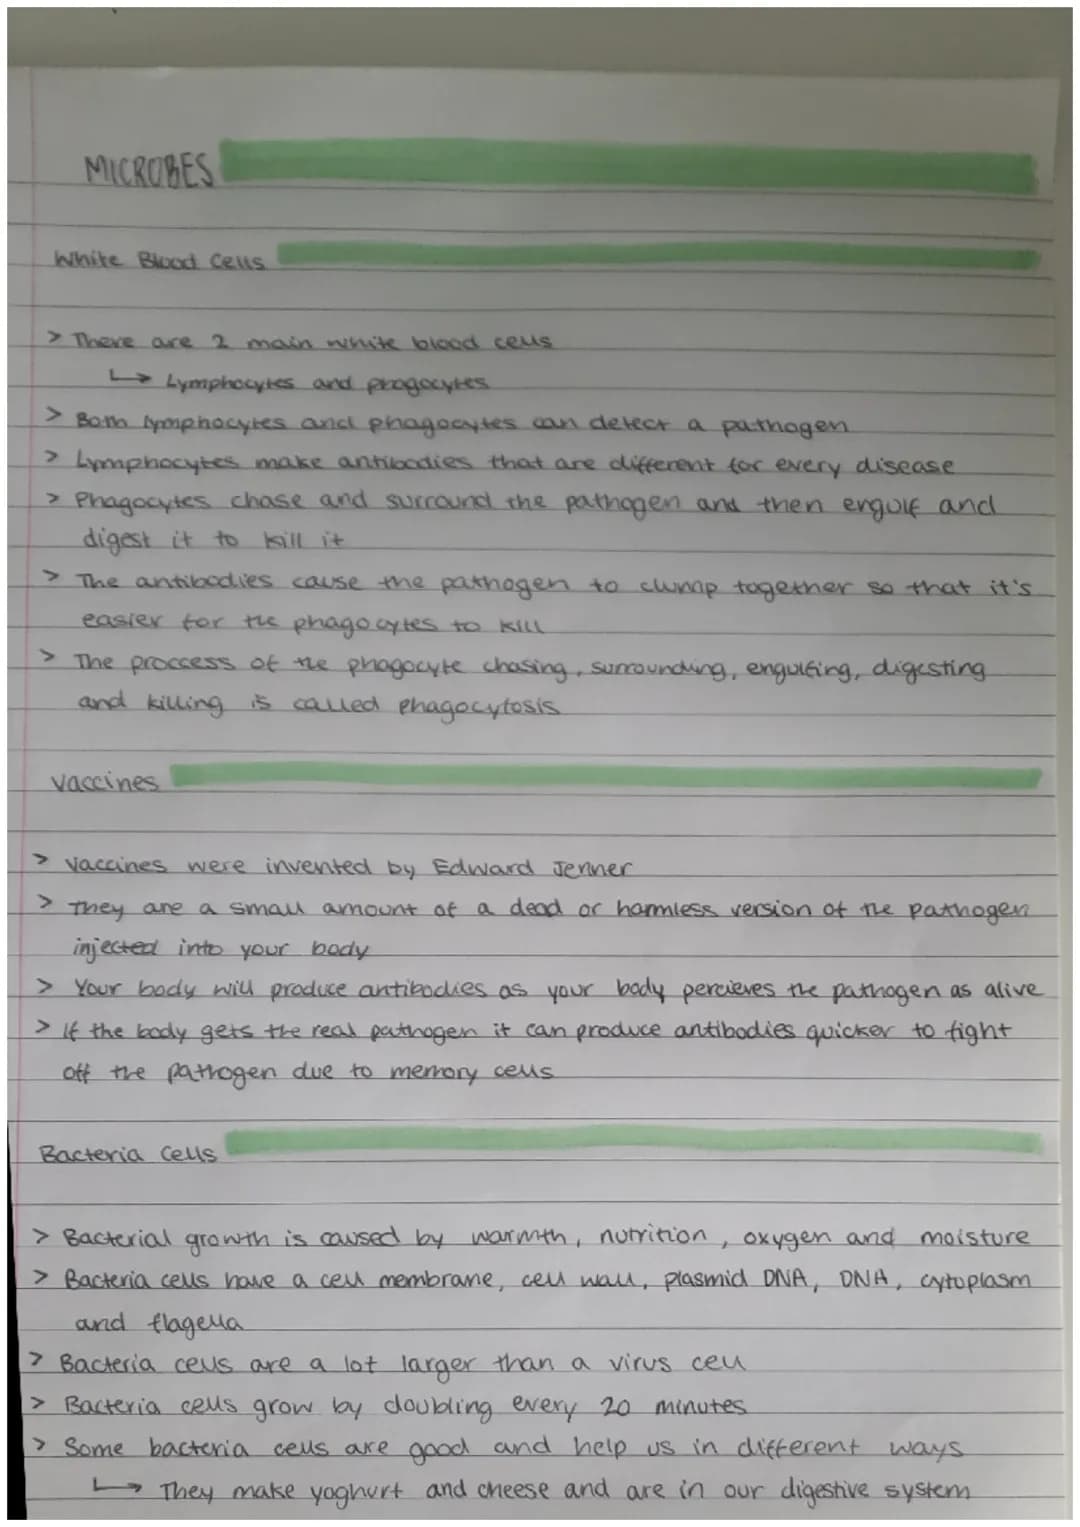 MICROBES
White Blood Cells
> There are 2 main white blood cells
↳ Lymphocytes and phagocytes
> Both lymphocytes and phagocytes can detect a pathogen
> Lymphocytes make antibodies that are different for every disease
> Phagocytes chase and surround the pathogen and then engulf and
digest it to kill it
> The antibodies cause the pathogen to clump together so that it's
easier for the phagocytes to kill
> The proccess of the phagocyte chasing, surrounding, engulfing, digesting
and killing is called phagocytosis
Vaccines
> Vaccines were invented by Edward Jenner
> They are a small amount of a dead or harmless version of the pathogen
injected into your body
> Your body will produce antibodies as your body percieves the pathogen as alive
> If the body gets the real pathogen it can produce antibodies quicker to fight
off the pathogen due to memory cells
Bacteria Cells
> Bacterial growth is caused by warmth, nutrition, oxygen and moisture
> Bacteria cells have a cell membrane, cell wall, plasmid DNA, DNA, cytoplasm
and flagella
> Bacteria cells are a lot larger than a virus cell
> Bacteria cells grow by doubling every 20 minutes
> Some bacteria cells are good and help us in different ways
↳ They make yoghurt and cheese and are in our digestive system